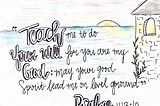 "Teach me to do
Your will for you are my
God: may your good
Spirit lead me on level ground"
Psalm 143:10